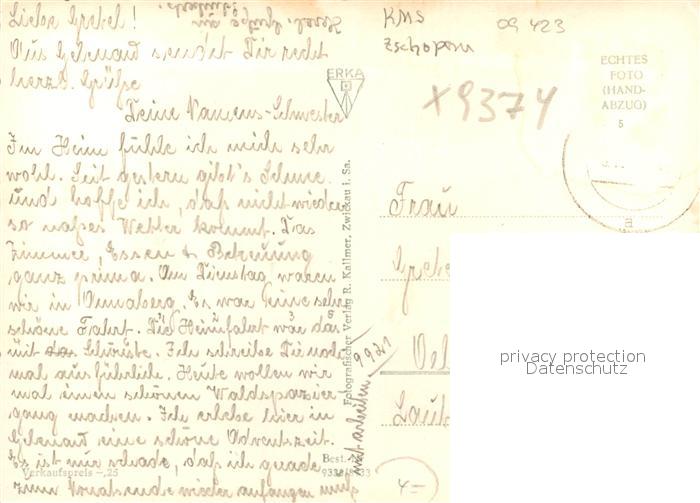 Liebe Gretel!
Aus Gelenau sendet Dir recht
herzl. Grüße
Deine Namens-Schwester
Im Heim fühle ich mich sehr
wohl. Seit gestern gibt's Schnee
und hoffe ich, daß nicht wieder
so naßes Wetter kommt. Das
Zimmer, Essen & Betreuung
ganz prima. Am Dienstag waren
wir in Annaberg. Es war eine sehr
schöne Fahrt. Die Heimfahrt war das
mit Schönste. Ich schreibe Dir noch
mal ausführlich. Heute wollen wir
mal einen schönen Waldspazier
gang machen. Ich erlebe hier in
Gelenau eine schöne Adventszeit.
Es ist nur schade, daß ich gerade
zum Monatsende wieder anfangen muß
mit arbeiten
Verkaufspreis -,25
Best.
ERKA
Fotografischer Verlag R. Kallmer, Zwickau i. Sa.
9921
KMS
Zschopau
09423
X9374
ECHTES
FOTO
(HAND-
ABZUG)
5
Frau
Grete
privacy protection
Datenschutz
4=